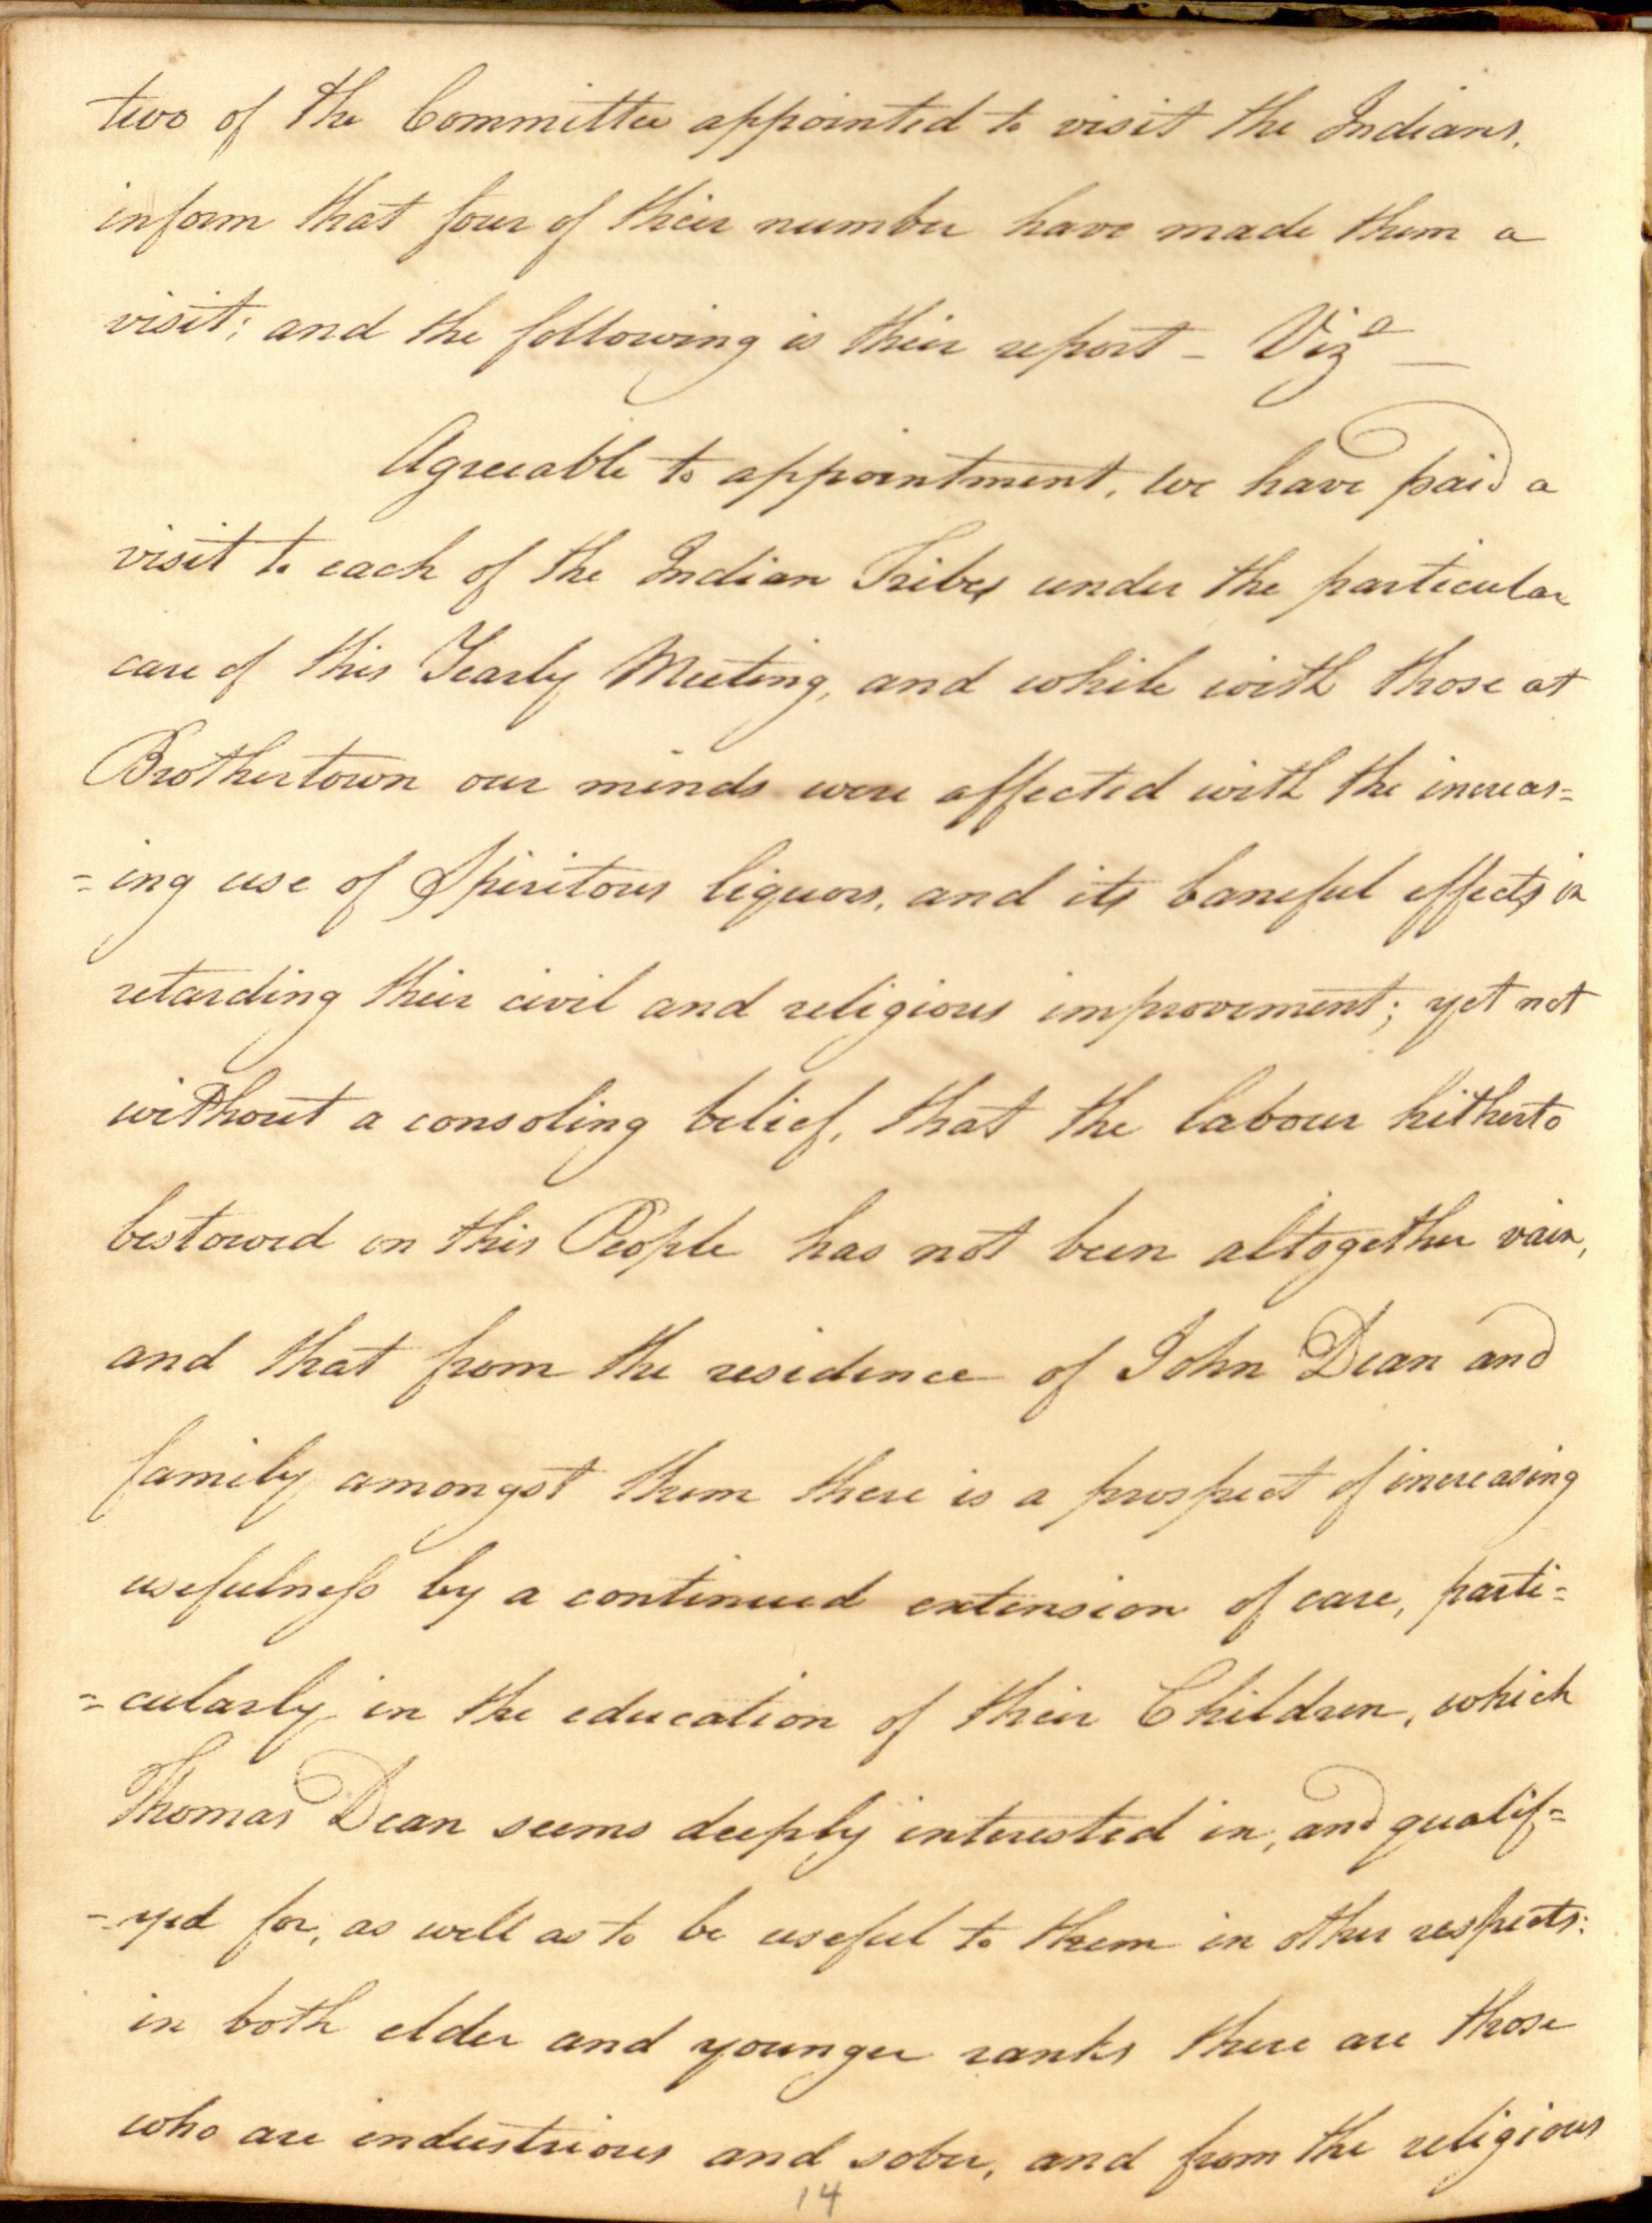 two of the Committee appointed to visit the Indians,
inform that four of their number have made them a
visit; and the following is their report – Viz —
Agreeable to appointment, we have paid a
visit to each of the Indian Tribes under the particular
care of this Yearly Meeting, and while with those at
Brothertown our minds were affected with the increas=
=ing use of Spiritous liquors, and its baneful effects in
retarding their civil and religious improvement; yet not
without a consoling belief, that the labour hitherto
bestowed on this People has not been altogether vain,
and that from the residence of John Dean and
family amongst them there is a prospect of increasing
usefulness by a continued extension of care, parti=
=cularly in the education of their Children, which
Thomas Dean seems deeply interested in, and qualif=
=yed for, as well as to be useful to them in other respects:
in both elder and younger ranks there are those
who are industrious and sober, and from the religious
14